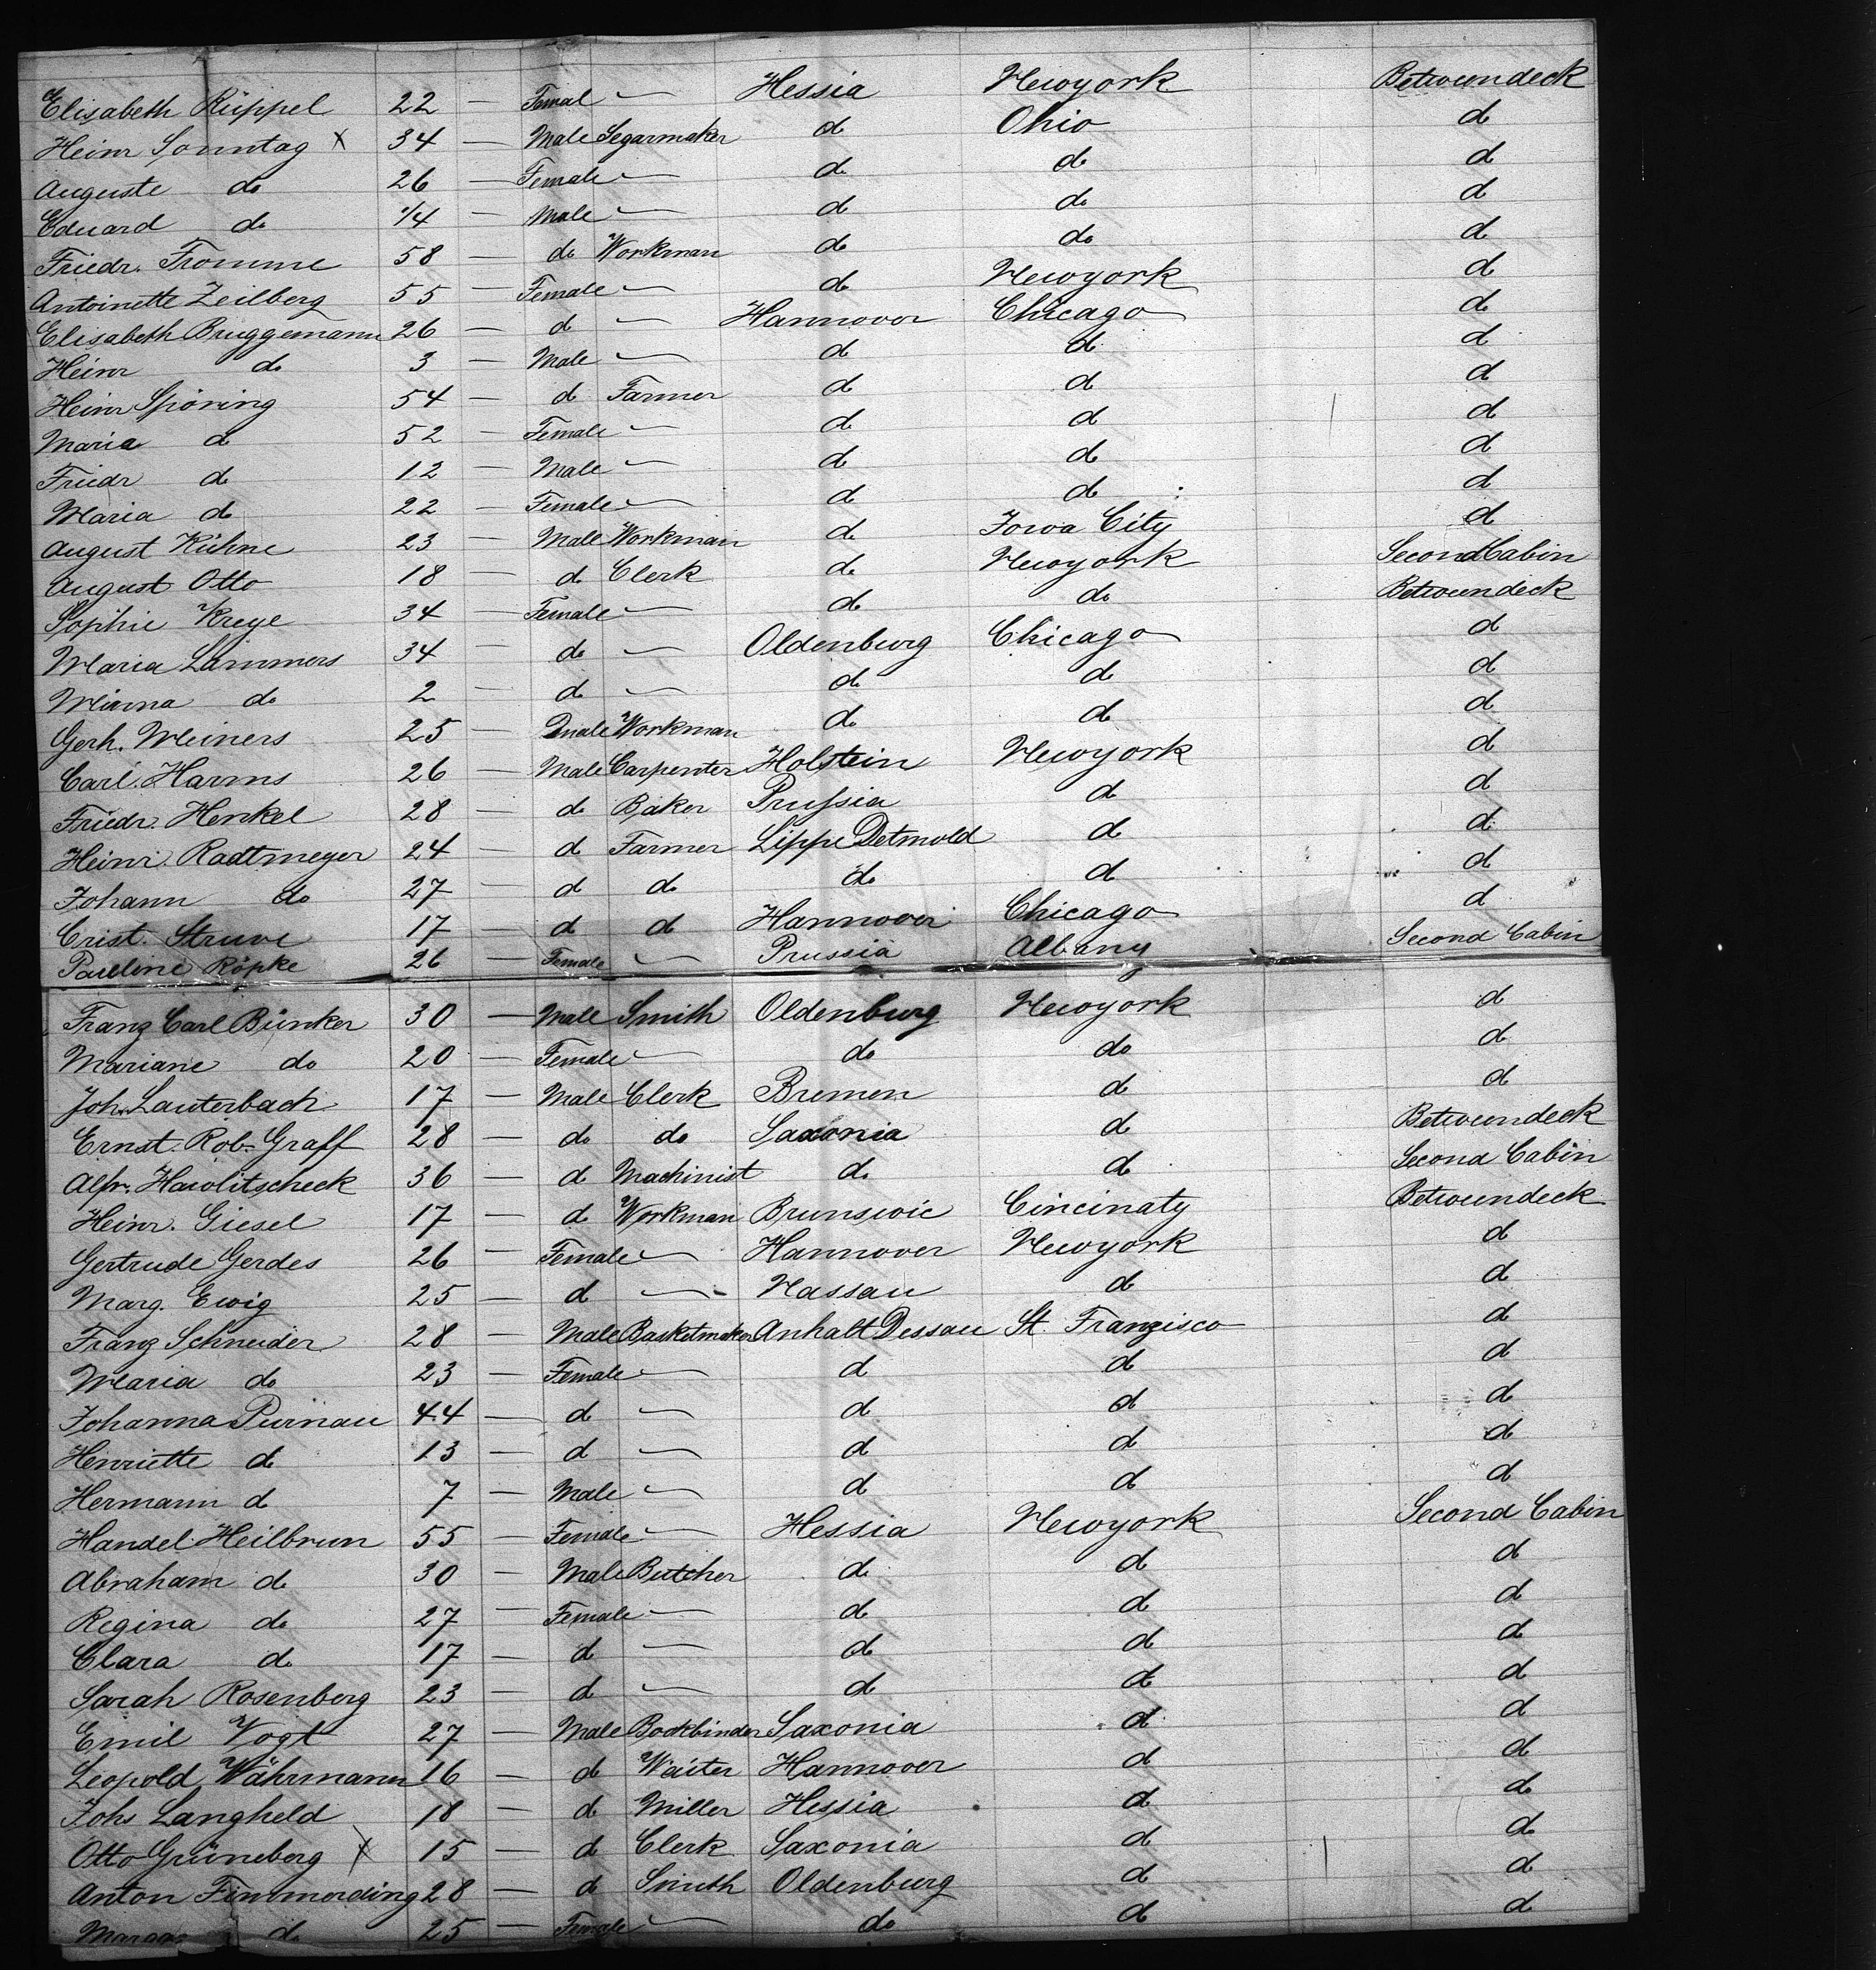 Elisabeth Rüppel 22 — Femal — Hessia Newyork Betweendeck
Heinr Sonntag x 34 — Male Segarmaker d Ohio d
Auguste do 26 — Female — d do d
Eduard do 1/4 — Male — d do d
Friedr. Fromme 58 — do Workman d do d
Antoinette Zeilberg 55 — Female — d Newyork d
Elisabeth Bruggemann 26 — d — Hannover Chicago d
Heinr do 3 — Male — d d d
Heinr Spöring 54 — d Farmer d d d
Maria d 52 — Female — d d d
Friedr d 12 — Male — d d d
Maria d 22 — Female — d d d
August Kühne 23 — Male Workman d Iowa City d
August Otto 18 — d Clerk d Newyork Second Cabin
Sophie Kreye 34 — Female — d do Betweendeck
Maria Lammers 34 — do — Oldenburg Chicago d
Minna do 2 — d — d d d
Gerh. Meiners 25 — Male Workman d d d
Carl Harms 26 — Male Carpenter Holstein Newyork d
Friedr. Henkel 28 — d Baker Prussia d d
Heinr. Radtmeyer 24 — d Farmer Lippe Detmold d d
Johann do 27 — d d do d d
Crist. Struve 17 — d d Hannover Chicago d
Pauline Röpke 26 — Female — Prussia Albany Second Cabin
Franz Carl Bünker 30 — Male Smith Oldenburg Newyork d
Mariane do 20 — Female — do do d
Joh. Lauterbach 17 — Male Clerk Bremen d d
Ernst. Rob. Graff 28 — do do Saxonia d Betweendeck
Alfr. Hawlitscheck 36 — d Machinist d d Second Cabin
Heinr. Giesel 17 — d Workman Brunswic Cincinaty Betweendeck
Gertrude Gerdes 26 — Female — Hannover Newyork d
Marg. Ewig 25 — d — Nassau d d
Franz Schneider 28 — Male Basketmaker Anhalt Dessau St. Franzisco d
Maria do 23 — Female — d d d
Johanna Purnau 44 — d — d d d
Henriette d 13 — d — d d d
Hermann d 7 — Male — d d d
Handel Heilbrun 55 — Female — Hessia Newyork Second Cabin
Abraham d 30 — Male Butcher d d d
Regina do 27 — Female — d d d
Clara d 17 — d — do d d
Sarah Rosenberg 23 — d — d d d
Emil Vogt 27 — Male Bookbinder Saxonia d d
Leopold Währmann 16 — d Waiter Hannover d d
Johs Langheld 18 — d Miller Hessia d d
Otto Grüneberg x 15 — d Clerk Saxonia d d
Anton Timmerding 28 — d Smith Oldenburg d d
d 25 — Female — do d d